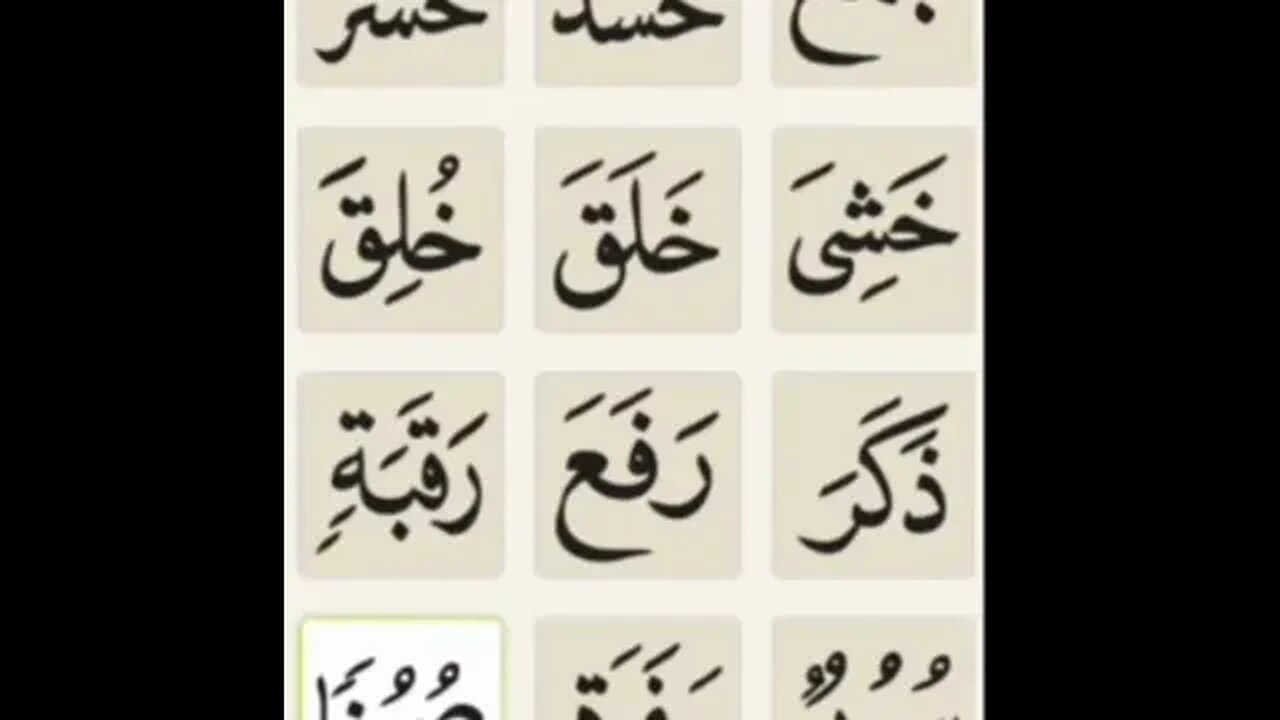 جمع حسد خسر
خَشِىَ خَلَقَ خُلِقَ
ذَكَرَ رَفَعَ رَقَبَةٍ